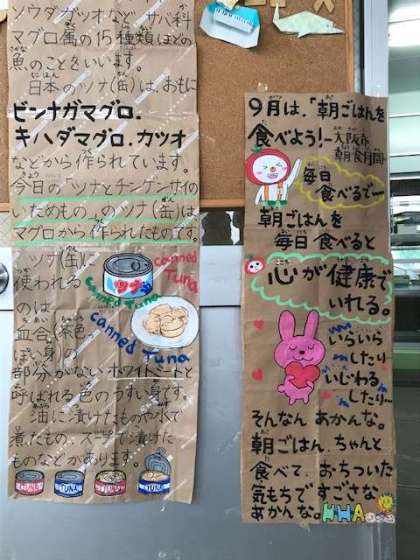 ソウダガツオなど、サバ科
マグロ属の15種類ほどの
魚のことをいいます。
日本のツナ(缶)は、おもに
ビンナガマグロ、
キハダマグロ、カツオ
などから作られています。
今日の「ツナとチンゲンサイの
いためもの」のツナ(缶)は
マグロから作られたものです。
ツナ(缶)に
使われる
のは、
血合(茶色
っぽい身)の
部分がないホワイトミートと
呼ばれる色のうすい身です。
油に漬けたものや水で
煮たもの、スープで漬けた
ものなどがあります。
canned
Tuna
ツナ缶
canned Tuna
canned Tuna
TUNA
TUNA
TUNA
TUNA
9月は、「朝ごはんを
食べよう!」大阪市
朝食月間
毎日
食べるでー
朝ごはんを
毎日食べると
心が健康で
いれる。
いらいら
したり
いじわる
したり…
そんなん あかんな。
朝ごはん ちゃんと
食べて、おちついた
気もちで すごさな
あかんな。